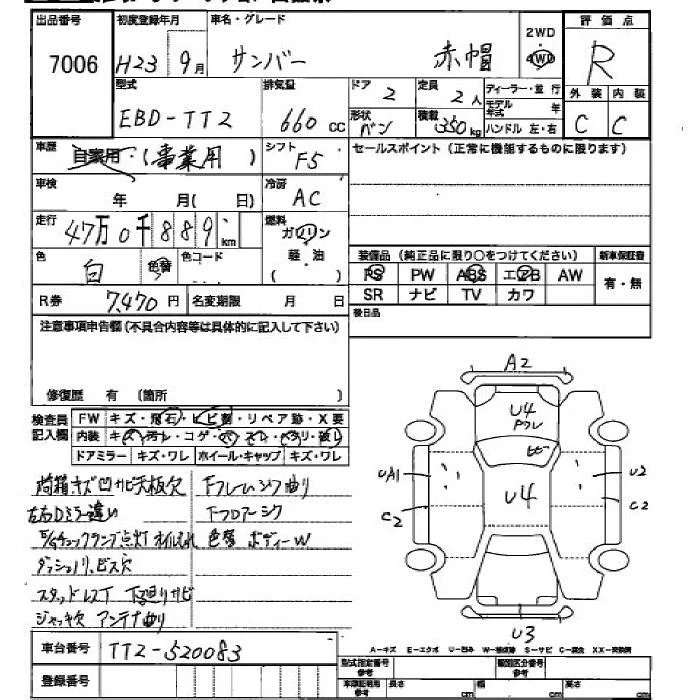 出品番号 初度登録年月 車名・グレード 2WD 評価点
7006 H23 9月 サンバー 赤帽 4WD R
型式 排気量 ドア 2 定員 2人 ディーラー・並行 外装 内装
EBD-TT2 660cc 形状 バン 積載 350kg モデル年式 年 ハンドル 左・右 C C
車歴 自家用・(事業用) シフト F5 セールスポイント(正常に機能するものに限ります)
車検 年 月(日) 冷房 AC
走行 47万0千889.km 燃料 ガソリン
色 白 色替 色コード 軽・油 装備品(純正品に限り○をつけてください) 新車保証書
( ) PS PW ABS エアB AW 有・無
R券 7,470円 名変期限 月 日 SR ナビ TV カワ
注意事項申告欄(不具合内容等は具体的に記入して下さい) 後日品
修復歴 有 (箇所 )
検査員 FW キズ・飛石・ヒビ割・リペア跡・X要
記入欄 内装 キズ・汚レ・コゲ・穴・スレ・ヘタリ・破レ
ドアミラー キズ・ワレ ホイール・キャップ キズ・ワレ
A2
U4
ヒビ
UA1 U4 U2
C2 C2
U3
荷箱キズ凹サビ天板欠 Fフレームシワ曲り
左右Dミラー違い Fフロアーシワ
E/Gチェックランプ点灯 オイルもれ 色替 ボディーW
ダッシュノリ、ビス穴
スタッドレスT 下廻りサビ
ジャッキ欠 アンテナ曲り
車台番号 TT2-520083 A-キズ E-エクボ U-凹み W-補修跡 S-サビ C-腐食 XX-交換済
登録番号 型式指定番号 参考 類別区分番号 参考
車庫証明用 参考 長さ cm 幅 cm 高さ cm